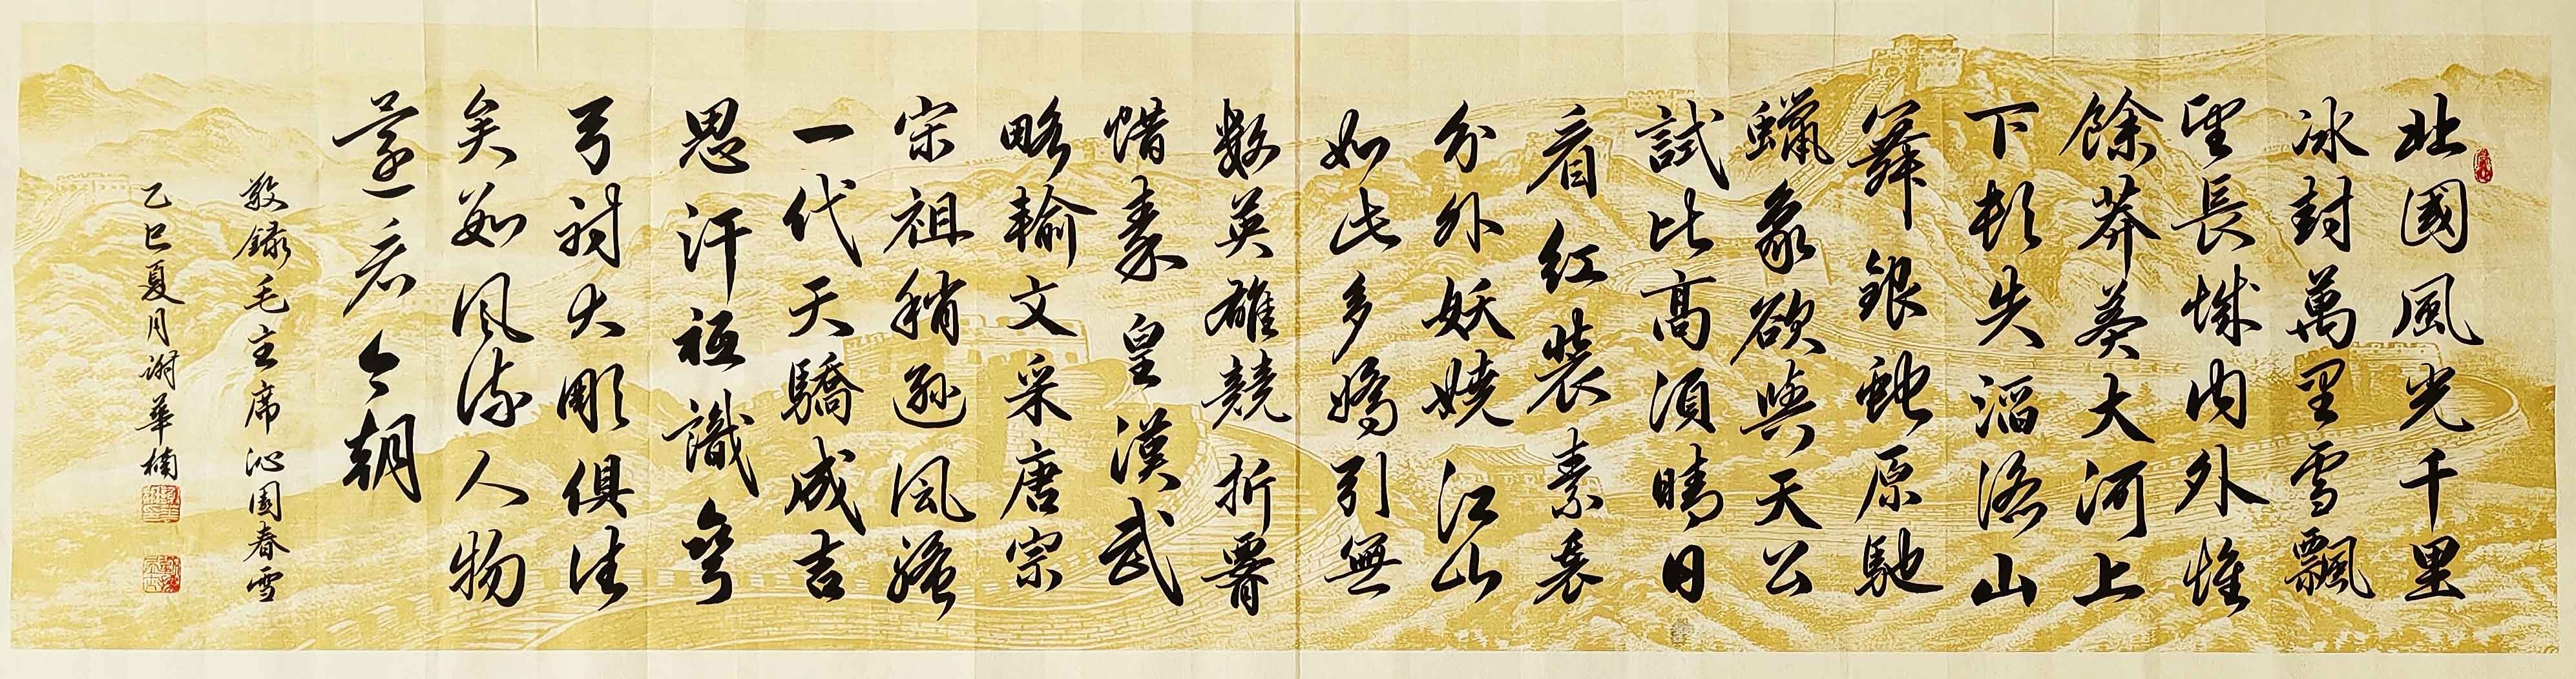 北國風光千里
冰封萬里雪飄
望長城內外惟
餘莽莽大河上
下頓失滔滔山
舞銀蛇原馳
蠟象欲與天公
試比高須晴日
看紅裝素裹
分外妖嬈江山
如此多嬌引無
數英雄競折腰
惜秦皇漢武
略輸文采唐宗
宋祖稍遜風騷
一代天驕成吉
思汗祗識彎
弓射大彫俱往
矣數風流人物
還看今朝
敬錄毛主席沁園春雪
乙巳夏月謝華楠